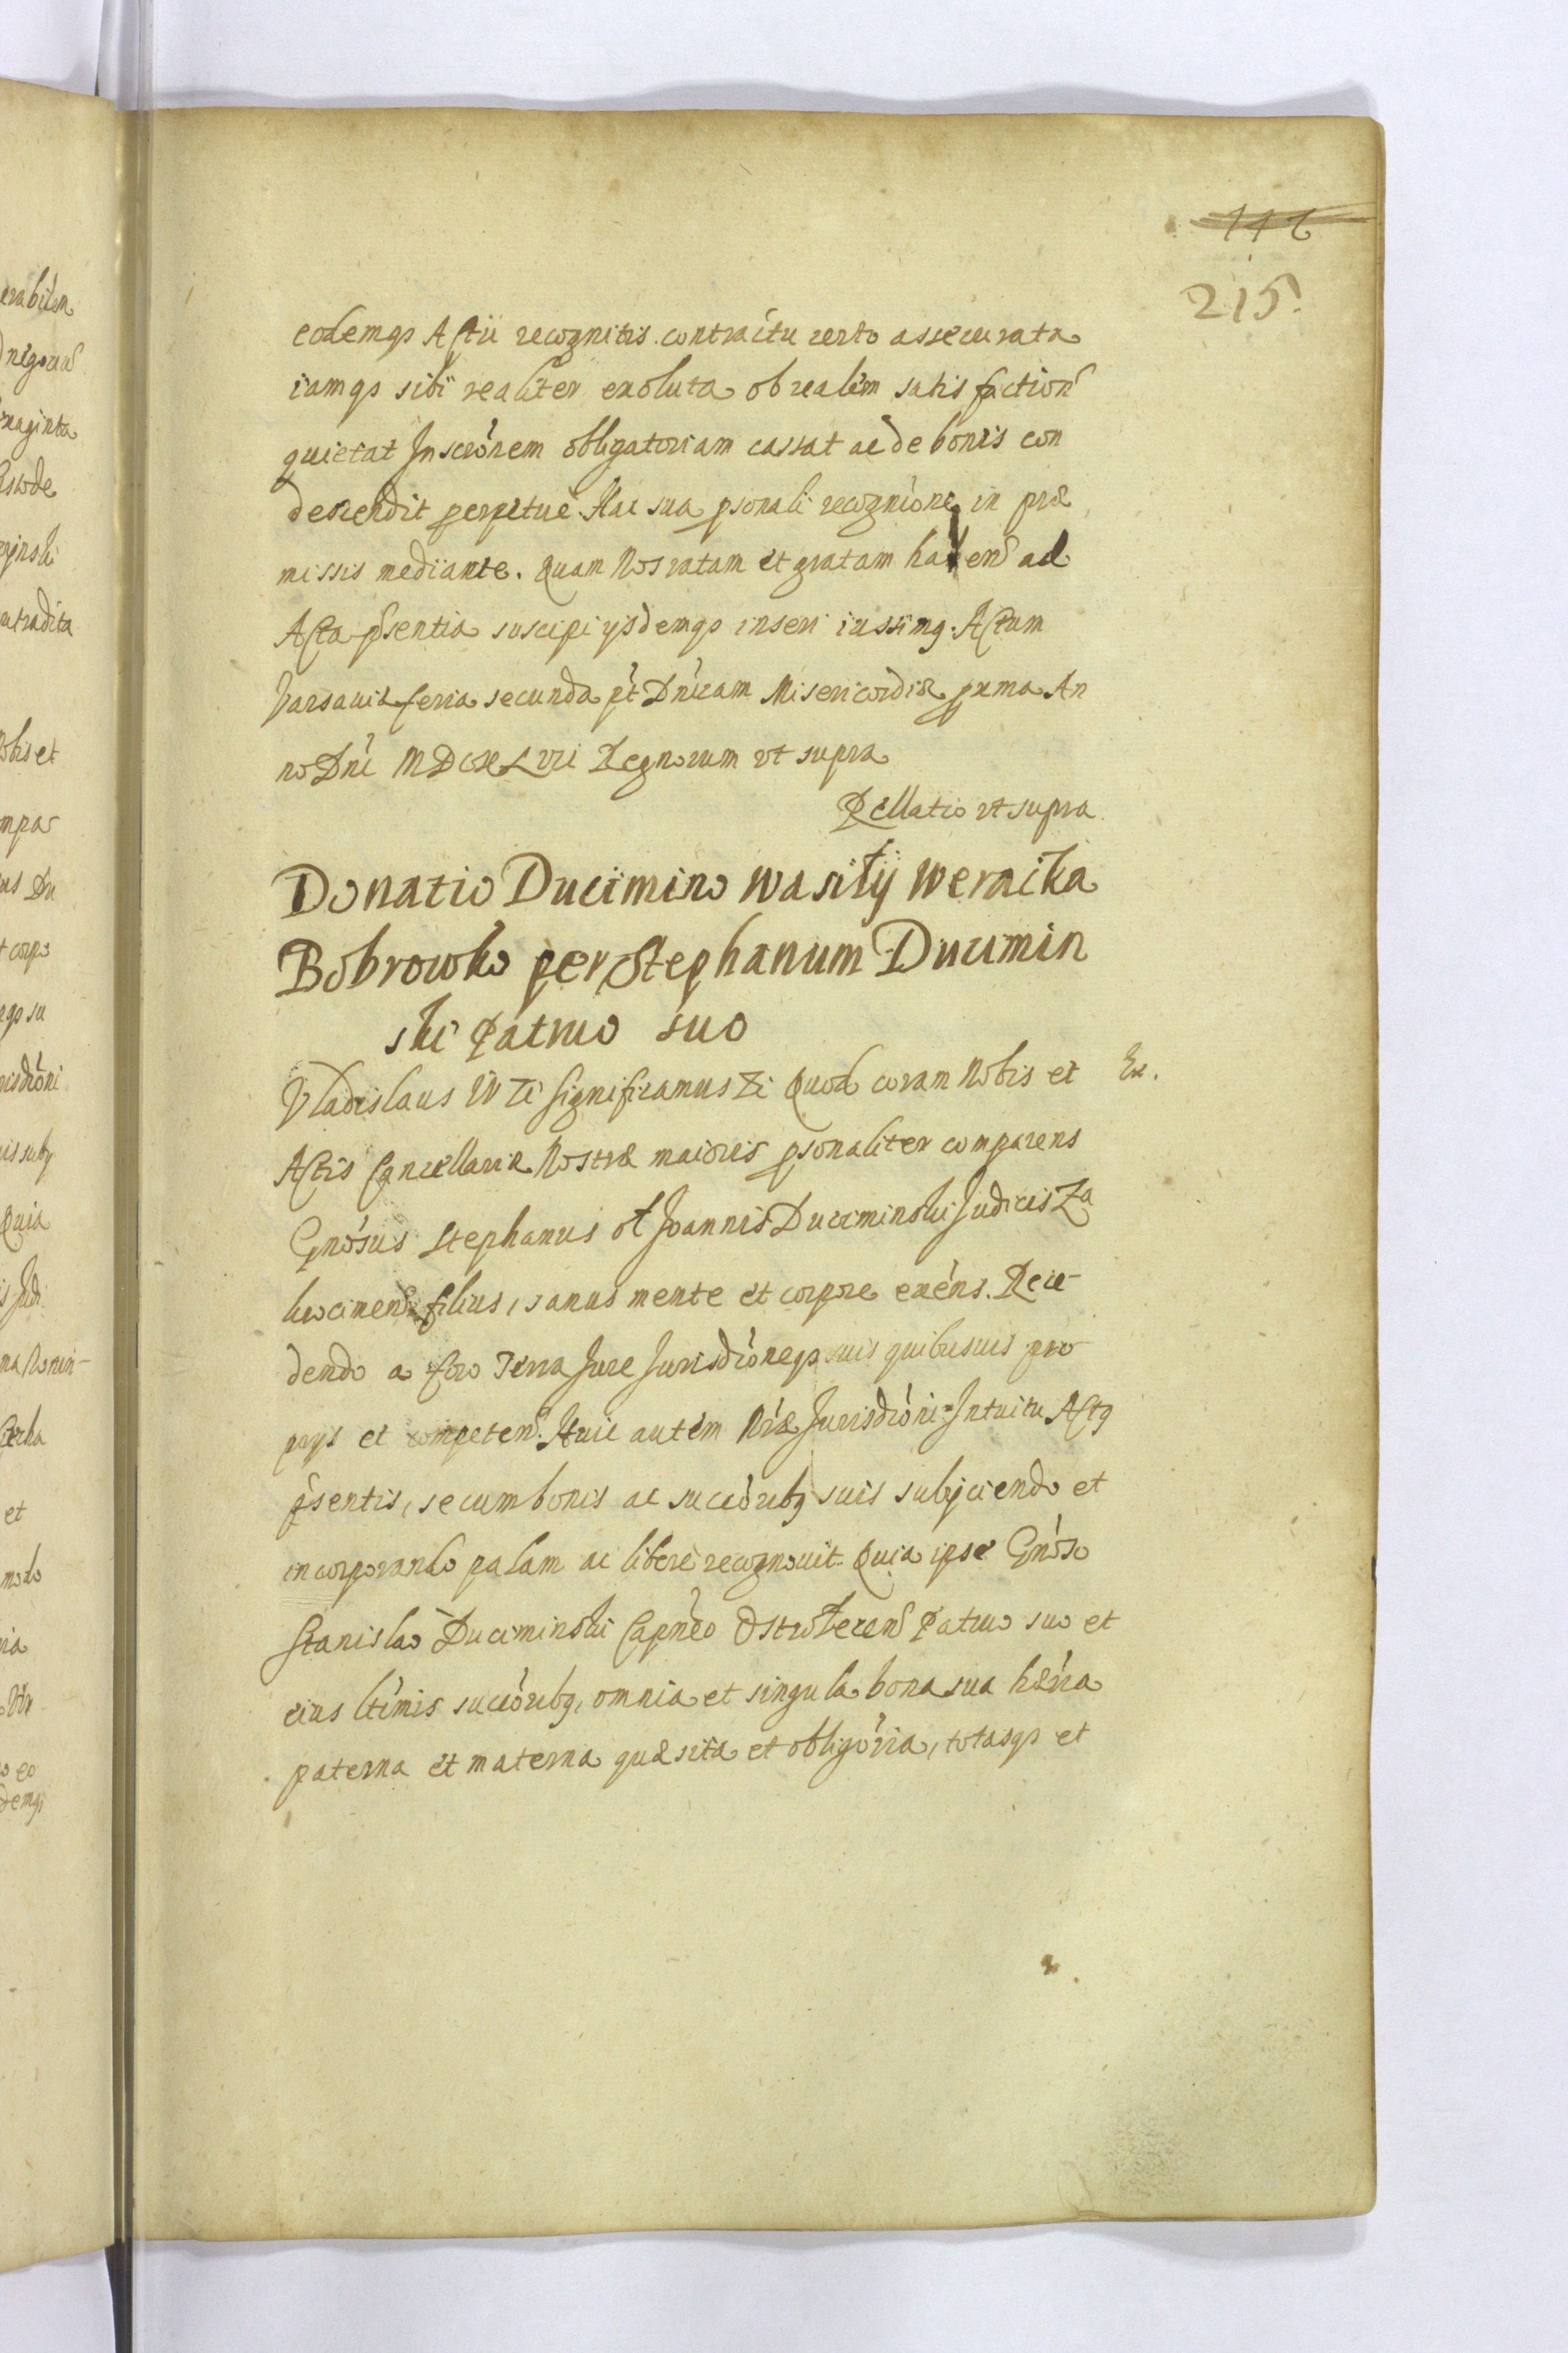 146
215.
eodemqs Actu recognitis contractu certo assecurata
iamqs sibi realiter exoluta ob realem satisfaction
quietat Inscrònem obligatoriam cassat ac de bonis con
descendit perpetuè. Hac sua psonali recogniòne in præ
missis mediante. Quam Nos ratam et gratam haben ad
Acta psentia suscipi ysdemqs inseri iussimg. Actum
Varsaviæ feria secunda pt Dnicam Misericordiæ pxma An
no Dni MDCXLVII Regnorum vt supra
Rellatio vt supra
Donatio Duciimino wasiły weraika
Bobrowko per Stephanum Ducimin
ski Patruo suo
Vladislaus IV Zi significamus Zi Quod coram Nobis et
Ex.
Actis Cancellariæ Nostræ maioris psonaliter comparens
Gnosus Stephanus ot Joannis Duciminski Judicis Za
krocimens filius, sanus mente et corpore exéns. Rece-
dendo a foro Terra Jure Jurisdiòneqs suis quibusuis pro
pays et competen. Huic autem Nræ Jurisdiòni Intuitu Actg
psentis, se cum bonis ac succòribg suis subyciendo et
incorporando palam ac liberè recognouit. Quia ipse Gnòso
Stanislao Duciminski Capneo Ostrołecen Patruo suo et
eius ltimis succòribg, omnia et singula bona sua hærìa
paterna et materna quæsita et obligòria, totasqs et